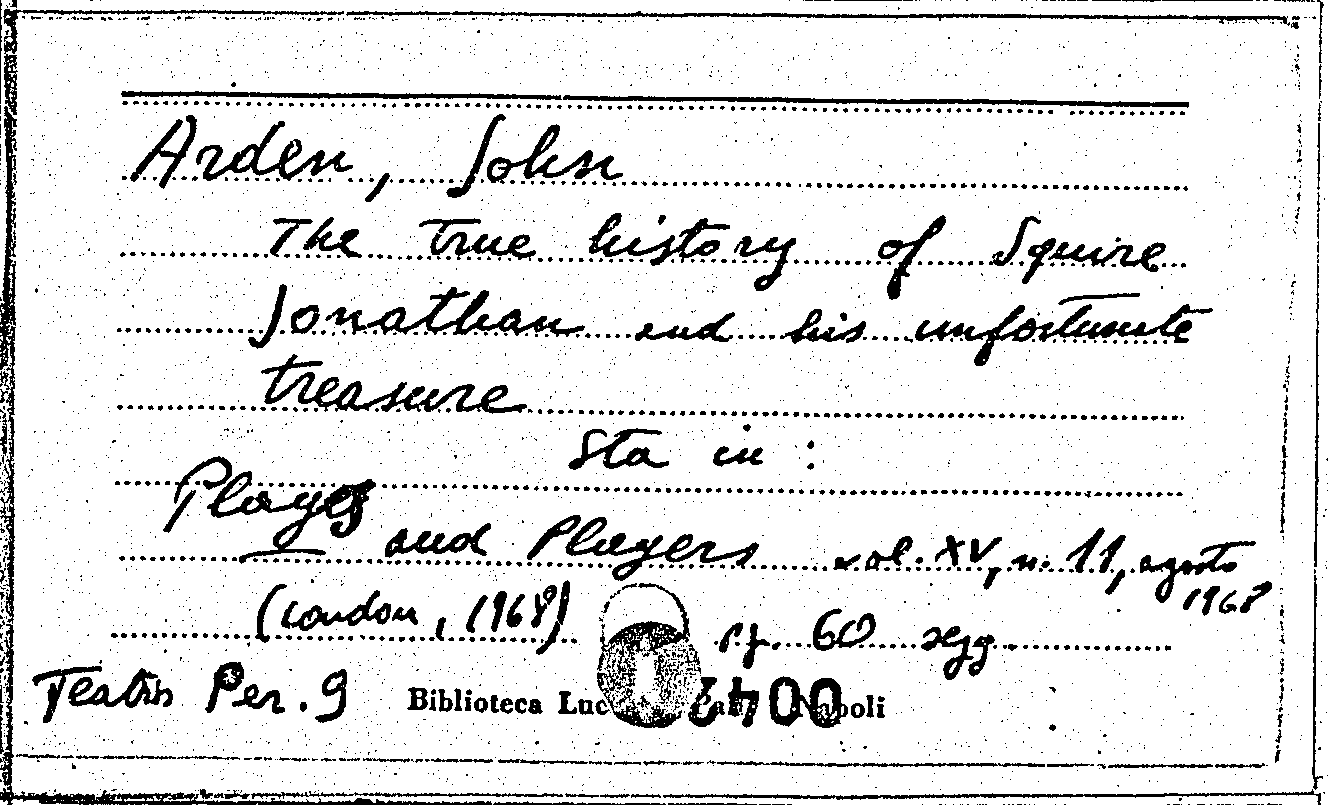 Arden, John
The true history of Squire
Jonathan and his unfortunate
treasure
Sta in:
Plays
and Players vol. XV, n. 11, agosto
1968
(London, 1968) pp. 60 segg.
Teatro Per. 9 Biblioteca Napoli